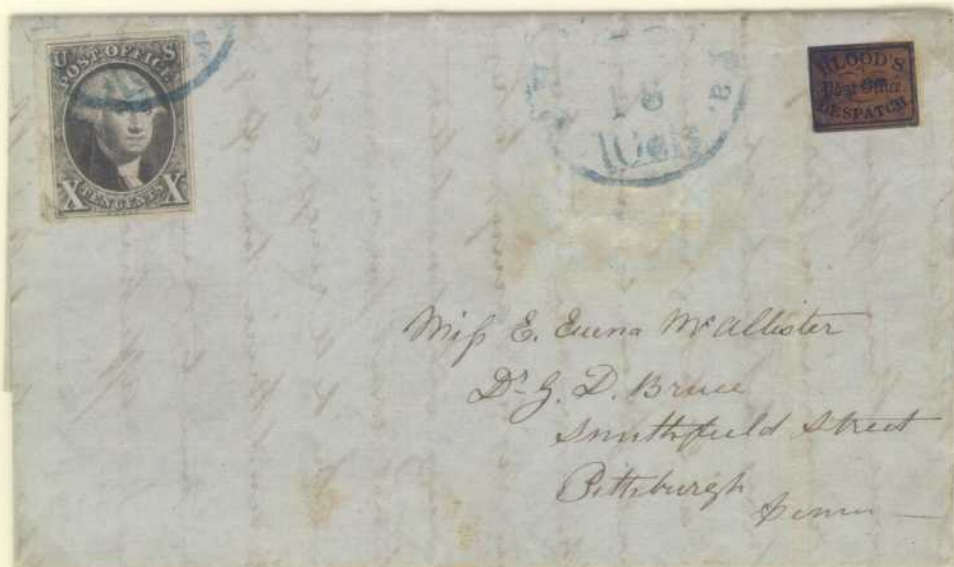 U S
POST OFFICE
X TEN CENTS X
Pa.
10cts
BLOOD'S
Post Office
DESPATCH
Miss E. Euena McAllister
Dr. G. D. Bruce
Smithfield Street
Pittsburgh
Penna